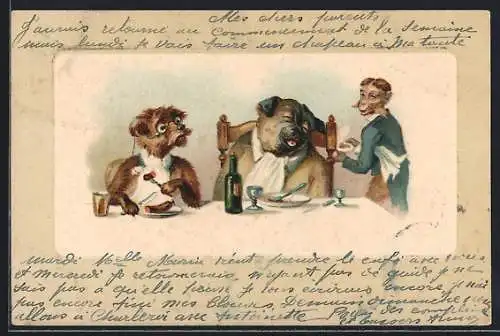 Mes chers parents
J'aurais retourné au commencement de la semaine
mais lundi je vais faire un chapeau à Ma tante
mardi Melle Maria vient prendre le café avec nous
et Mercredi je retournerais, n'ayant pas de guide je ne
sais pas à quelle heure je vous écrirais encore, je n'ai
pas encore fini mes blouses. Demain dimanche nous
allons à Charleroi avec Antoinette